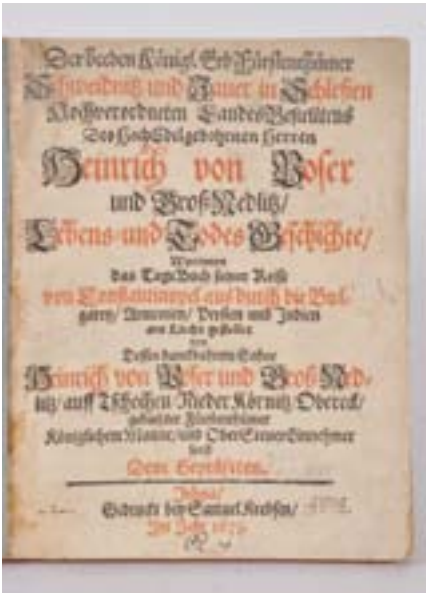 Der beeden Königl. Erb Fürstenthümer
Schweidnitz und Jauer in Schlesien
Hochverordneten Landes Bestelltens
Des HochEdelgebohrnen Herren
Heinrich von Poser
und Groß Nedlitz/
Lebens- und Todes Geschichte/
Worinnen
das Tage Buch seiner Reise
von Constantinopel aus durch die Bul-
garey/ Armenien/ Persien und Indien
ans Liecht gestellet
von
Dessen danckbahrem Sohne
Heinrich von Poser und Groß Ned-
litz/ auff Tschechen Nieder Körnitz Obereck/
gedachter Fürstenthümer
Königlichem Manne/ und Ober Steuer Einnehmer
Jehna/
Gedruckt bey Samuel Krebsen/
Im Jahr